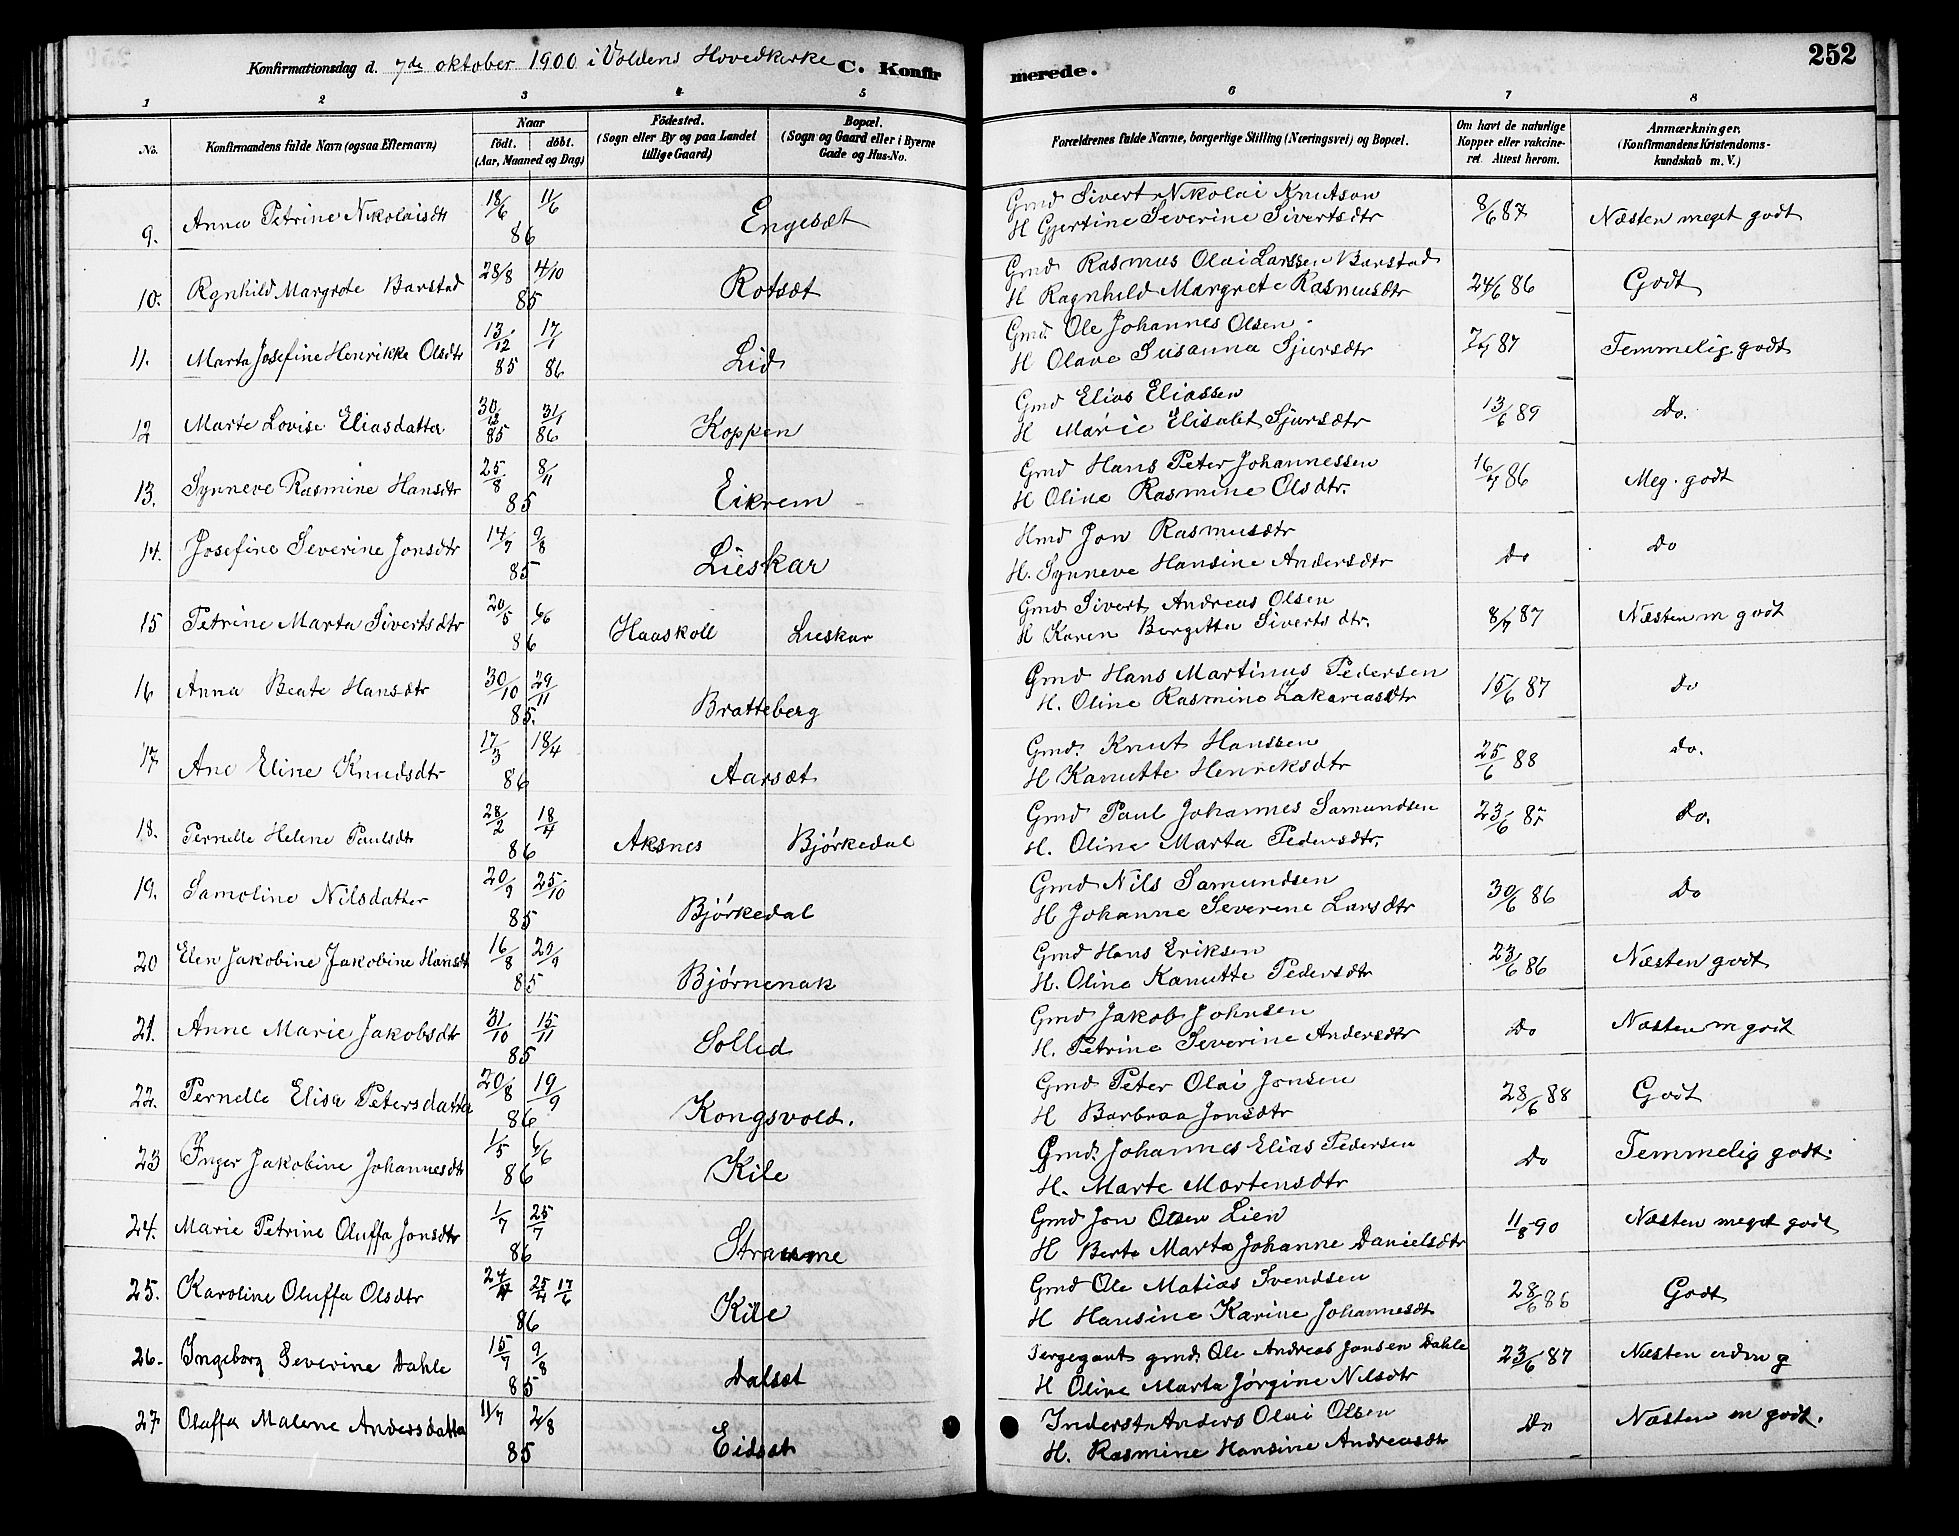 252
Konfirmationsdag d. 7de oktober 1900 i Voldens Hovedkirke C. Konfir merede.
1 2 3 4 5 6 7 8
No. Konfirmandens fulde Navn (ogsaa Efternavn) Naar født. døbt. (Aar, Maaned og Dag) Födested. (Sogn eller By og paa Landet tillige Gaard) Bopæl. (Sogn og Gaard eller i Byerne Gade og Hus-No. Forældrenes fulde Navne, borgerlige Stilling (Næringsvei) og Bopæl. Om havt de naturlige Kopper eller vakcineret. Attest herom. Anmærkninger. (Konfirmandens Kristendomskundskab m. V.)
9. Anna Petrine Nikolaisdtr 18/6 11/6 86 Engesæt Gmd Sivert Nikolai Knutson 8/6 87 Næsten meget godt
H Gjertine Severine Sivertsdtr
10. Rgnhild Margrete Barstad 28/8 4/10 85 Rotsæt Gmd Rasmus Olai Larssen Barstad 24/6 86 Godt
H Ragnhild Margrete Rasmusdtr
11. Marta Josefine Henrikke Olsdtr 13/12 85 17/1 86 Lid Gmd. Ole Johannes Olsen 87 Temmelig godt
H Olave Susanna Sjursdtr
12 Marte Lovise Eliasdatter 30/12 85 31/1 86 Koppen Gmd Elias Eliassen 13/6 89 Do.
H Marie Elisabet Sjursdtr
13. Synneve Rasmine Hansdtr 25/8 8/11 85 Eikrem Gmd Hans Peter Johannessen 16/7 86 Meg. godt
H Oline Rasmine Olsdtr.
14. Josefine Severine Jonsdtr 14/7 9/8 85 Lieskar Hmd Jon Rasmusdtr Do Do
H. Synneve Hansine Andersdtr
15 Petrine Marta Sivertsdtr 20/5 6/6 86 Haaskoll Lieskar Gmd Sivert Andreas Olsen 8/7 87 Næsten m godt
H Karen Bergitta Sivertsdtr.
16 Anna Beate Hansdtr 30/10 29/11 85. Bratteberg Gmd Hans Martinus Pedersen 15/6 87 Do
H. Oline Rasmine Zakariasdtr
17 Ane Eline Knudsdtr 17/3 18/4 86 Aarsæt Gmd. Knut Hanssen 25/6 88 Do.
H Kanutte Henriksdtr
18. Pernelle Helene Paulsdtr 28/2 18/4 86 Aksnes Bjørkedal Gmd Paul Johannes Samundsen 23/6 87 Do.
H. Oline Marta Pedersdtr.
19. Samoline Nilsdatter 20/9 25/10 85 Bjørkedal Gmd Nils Samundsen 30/6 86 Do
H Johanne Severene Larsdtr
20 Elen Jakobine Jakobine Hansdt 16/8 27/9 85 Bjørnenak Gmd Hans Eriksen 23/6 86 Næsten godt
H. Oline Kanutte Pedersdtr
21. Anne Marie Jakobsdtr 31/10 15/11 85 Sollid Gmd Jakob Johnsen Do Næsten m godt
H. Petrine Severine Andersdtr
22. Pernelle Elisa Petersdatter 20/8 19/9 86 Kongsvold. Gmd Peter Olai Jonsen 28/6 88 Godt
H Barbraa Jonsdtr
23 Inger Jakobine Johannesdtr 1/5 6/6 86 Kile Gmd. Johannes Elias Pedersen Do Temmelig godt.
H. Marte Martensdtr
24. Marie Petrine Oluffa Jonsdtr 1/7 25/7 86 Straume Gmd Jon Olsen Lien 11/8 90 Næsten meget godt
H Berte Marta Johanne Danielsdtr
25. Karoline Oluffa Olsdtr 24/4 25/4 17/6 86 Kile Gmd Ole Matias Svendsen 28/6 86 Godt
H Hansine Karine Johannesdt
26. Ingeborg Severine Dahle 15/7 9/8 85 Dalsæt Sergegant gmd. Ole Andreas Jonsen Dahle 23/6 87 Næsten g
H Oline Marta Jørgine Nilsdtr
27 Oluffa Malene Andersdatter 11/7 2/8 85 Eidsæt Inderst Anders Olai Olsen Do Næsten m godt.
H. Rasmine Hansine Andreasdtr